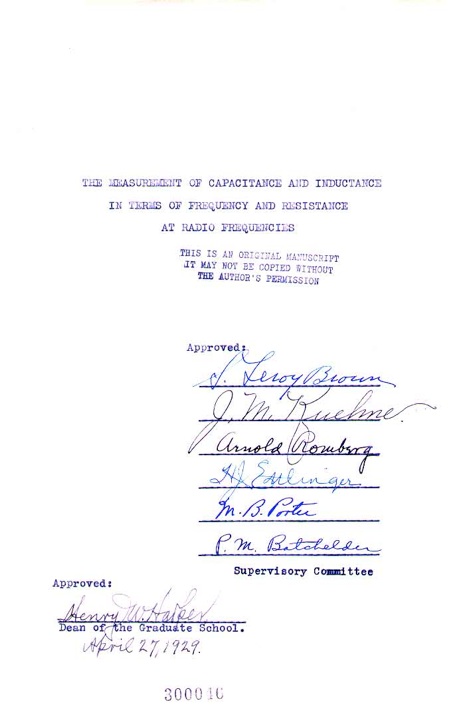 THE MEASUREMENT OF CAPACITANCE AND INDUCTANCE
IN TERMS OF FREQUENCY AND RESISTANCE
AT RADIO FREQUENCIES
THIS IS AN ORIGINAL MANUSCRIPT
IT MAY NOT BE COPIED WITHOUT
THE AUTHOR'S PERMISSION
Approved:
S. Leroy Brown
J. M. Kuehne
Arnold Romberg
H. J. Ettlinger
M. B. Porter
P. M. Batchelder
Supervisory Committee
Approved:
Henry W. Harper
Dean of the Graduate School.
April 27, 1929.